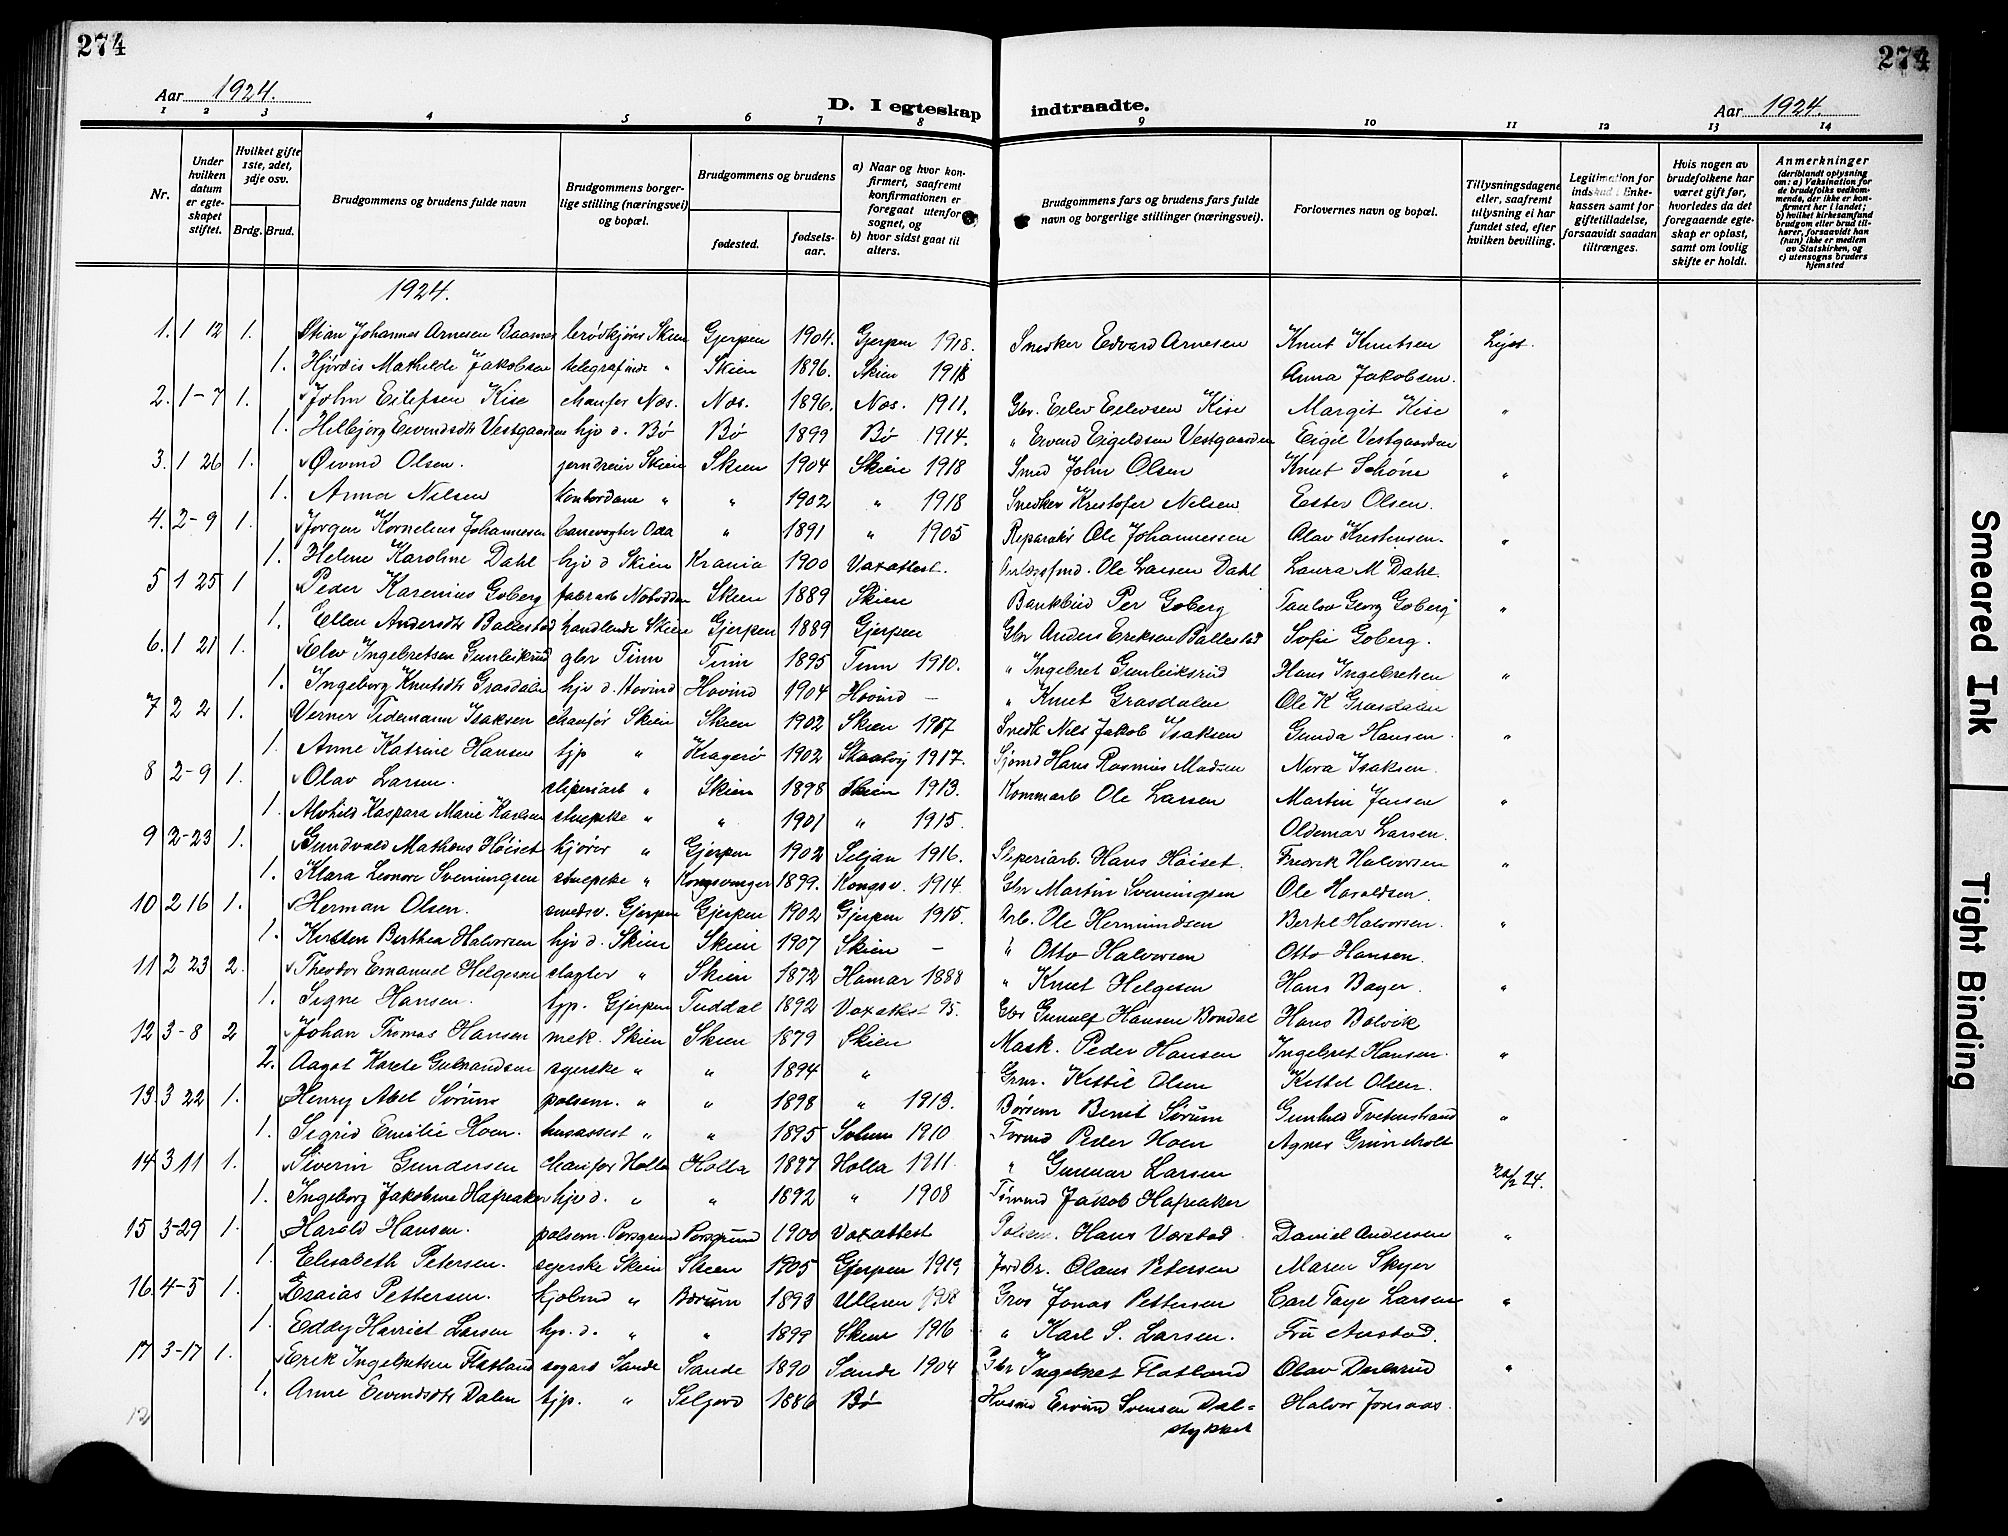 274
274
Aar 1924.
D. I egteskap indtraadte.
Aar 1924.
1 2 3 4 5 6 7 8 9 10 11 12 13 14
Nr.
Under hvilken datum er egteskapet stiftet.
Hvilket gifte 1ste, 2det, 3dje osv.
Brdg. Brud.
Brudgommens og brudens fulde navn
Brudgommens borgerlige stilling (næringsvei) og bopæl.
Brudgommens og brudens
fødested.
fødselsaar.
a) Naar og hvor konfirmert, saafremt konfirmationen er foregaat utenfor sognet, og
b) hvor sidst gaat til alters.
Brudgommens fars og brudens fars fulde navn og borgerlige stillinger (næringsvei).
Forlovernes navn og bopæl.
Tillysningsdagene eller, saafremt tillysning ei har fundet sted, efter hvilken bevilling.
Legitimation for indskud i Enkekassen samt for giftetilladelse, forsaavidt saadan tiltrænges.
Hvis nogen av brudefolkene har været gift før, hvorledes da det foregaaende egteskap er opløst, samt om lovlig skifte er holdt.
Anmerkninger (deriblandt oplysning om: a) Vaksination for de brudefolks vedkommende, der ikke er konfirmert her i landet; b) hvilket kirkesamfund brudgom eller brud tilhører, forsaavidt han (hun) ikke er medlem av Statskirken, og c) utensogns bruders hjemsted
1924.
1. 1 12 1. Stian Johannes Arnesen Baasnes brødkjører Skien Gjerpen 1904. Gjerpen 1918. Snedker Edvard Arnesen Knut Knutsen Lyst.
1. Hjørdis Mathilde Jakobsen telegrafinde " Skien 1896. Skien 1911 Anna Jakobsen.
2. 1-7 1. John Eilefsen Kise chaufør Nes. Nes. 1896. Nes. 1911. Gbr. Eilev Eilevsen Kise Margit Kise "
1. Helbjørg Eivindsdtr Vestgaarden hjv d. Bø Bø 1899 Bø 1914. " Eivind Eigeldsen Vestgaarden Eigil Vestgaarden
3. 1 26 1. Øivind Olsen. jerndreier Skien Skien 1904 Skien 1918 Smed John Olsen Knut Schøne "
1. Anna Nilsen kontordame " " 1902 " 1918 Snedker Kristofer Nilsen Ester Olsen.
4. 2-9 1. Jørgen Kornelius Johannessen banevogter Oda " 1891 " 1905 Reparatør Ole Johannessen Olav Kristensen. "
1. Helene Karoline Dahl hjv d Skien Krania 1900 Vaxattest. Ole Larsen Dahl Laura M Dahl.
5 1 25 1 Peder Karenius Goberg fabrarb Notodden Skien 1889 Skien Bankbud Per Goberg Taulov Georg Goberg "
1. Ellen Andersdtr Ballestad handlende Skien Gjerpen 1889 Gjerpen Gbr Anders Eriksen Ballestad Sofie Goberg.
6. 1 21 1. Eilev Ingebretsen Gunleiksrud gbr Tinn Tinn 1895 Tinn 1910. " Ingebret Gunleiksrud Hans Ingebretsen "
1. Ingeborg Knutsdtr Grasdalen hjv d. Hovind Hovind 1904 Hovind – " Knut Grasdalen Ole K Grasdalen
7 2 2 1. Verner Tidemann Isaksen chaufør Skien Skien 1902 Skien 1917 Snedk Nils Jakob Isaksen Gunda Hansen. "
1. Anne Katrine Hansen tjp " Kragerø 1902 Skaatøy 1917. Sjømd Hans Rasmus Madsen Nora Isaksen.
8 2-9 1. Olav Larsen. sliperiarb " Skien 1898 Skien 1913. Kommarb Ole Larsen Martin Jensen "
1. Alvhild Kaspara Marie Karlsen stuepike " " 1901 " 1915. Oldemar Larsen.
9 2-23 1. Gundvald Mathæus Høiset kjører " Gjerpen 1902 Seljan 1916. Sliperiarb. Hans Høiset. Fredrik Halvorsen "
1. Klara Leonore Sveningsen stuepike " Kongsvinger 1899. Kongsv. 1914. Gbr Martin Sveningsen Ole Haraldsen.
10 2 16 1. Herman Olsen. smedsv. Gjerpen Gjerpen 1902 Gjerpen 1915. Arb. Ole Hermundsen Bertel Halvorsen. "
1. Kirsten Berthea Halvorsen hjv d. Skien Skien 1907 Skien – " Otto Halvorsen Otto Hansen.
11 2 23 2. Theodor Emanuel Helgesen slagter " Skien 1872 Hamar 1888 " Knut Helgesen Hans Bayer. "
1. Signe Hansen. tjp. Gjerpen Tuddal 1892 Vaxattest 95. Gbr Gunnulf Hansen Bondal Hans Bolvik
12 3-8 2 Johan Thomas Hansen mek. Skien Skien 1879 Skien Mask. Peder Hansen Ingebret Hansen. "
2. Aagot Karete Gulbrandsen syerske " " 1894 " Grmr. Kittil Olsen Kittel Olsen.
13 3 22 1. Henry Abel Sørum pølsem. " " 1898 " 1913. Børsem Bernt Sørum Gunhild Tvetenstrand "
1. Sigrid Emilie Hoen. husassest " " 1895 Solum 1910 Tømmd Peder Hoen Agnes Grüneholt
14 3 11 1. Siverin Gundersen chaufør Holla Holla 1897 Holla 1911. " Gunnar Larsen 20/2 24.
1. Ingeborg Jakobine Hafreaker hjv d. " " 1892 " 1908 Tømmd Jakob Hafreaker
15 3-29 1. Harald Hansen. pølsem. Porsgrund Porsgrund 1900 Vaxattest Pølsem. Hans Varstad. Daniel Andersen "
1. Elisabeth Petersen. syerske Skien Skien 1905 Gjerpen 1919 Jordbr. Olaus Petersen Maren Skyer
16 4-5 1. Esaias Pettersen. kjøbmd " Bærum 1893 Ullern 1908 Gros Jonas Pettersen Carl Taye Larsen "
1. Eddy Harriet Larsen hjv. d. " " 1899 Skien 1916 " Karl S. Larsen. Fru Austad.
17 3-17 1. Erik Ingebretsen Flatland sagarb Sande Sande 1890 Sande 1904 Gbr Ingebret Flatland Olav "
1. Anne Eivindsdtr Dalen tjp. " Seljord 1886 Bø Husmd Eivind Svensen Dal= Halvor Jonsaas.
stykket
12
Smeared Ink
Tight Binding